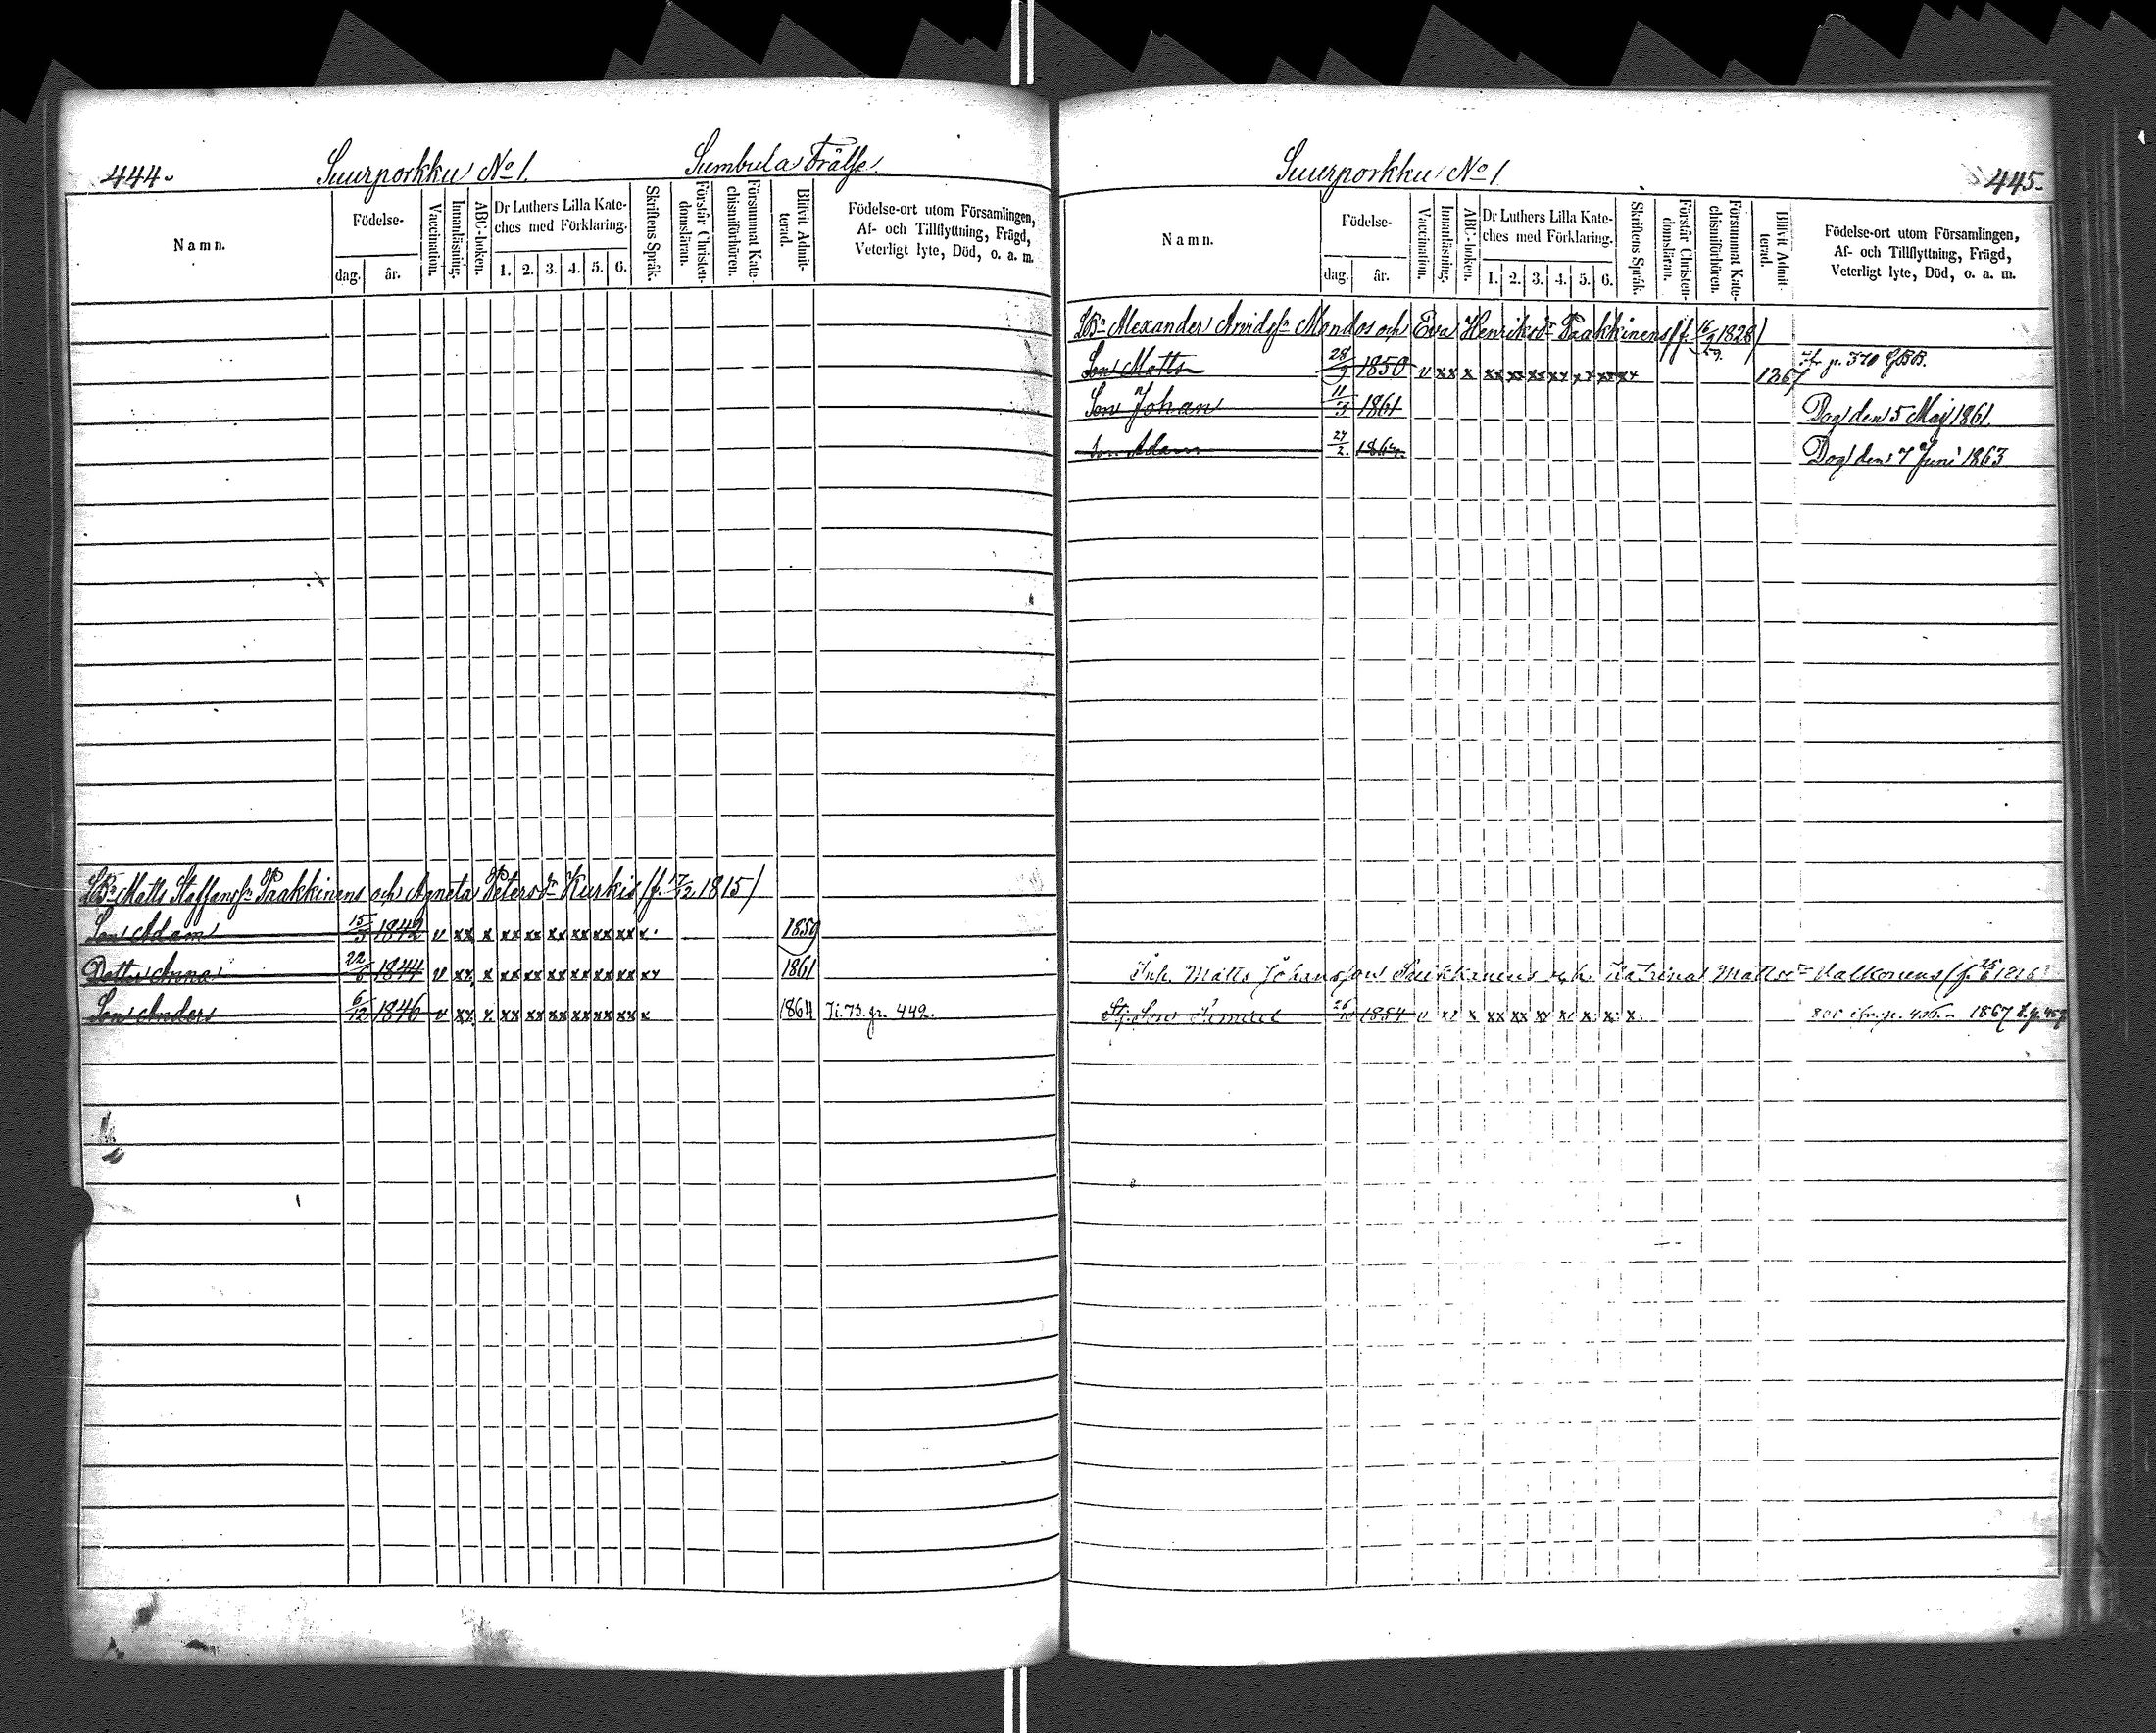 444.
Suurporkku No 1.
Sumbula Frälse.
Namn.
Födelse-
dag.
år.
Vaccination.
Innanläsning.
ABC-boken.
Dr Luthers Lilla Kate-
ches med Förklaring.
1. 2. 3. 4. 5. 6.
Skriftens Språk.
Förstår Christen-
domsläran.
Försummat Kate-
chismiförhören.
Blifvit Admit-
terad.
Födelse-ort utom Församlingen,
Af- och Tillflyttning, Frägd,
Veterligt lyte, Död, o. a. m.
Matts Staffans Paakkinens och Agneta Petersdr Kurkis (f. 1815)
Son Adam 15/3 1842 v xx x xx xx xx xx xx xx x. 1859
Dotter Anna 22/6 1844 v xx x xx xx xx xx xx xx xx 1861
Son Anders 6/12 1846 v xx x xx xx xx xx xx xx x 1864 442.
Suurporkku No 1
445.
Namn.
Födelse-
dag.
år.
Vaccination.
Innanläsning.
ABC-boken.
Dr Luthers Lilla Kate-
ches med Förklaring.
1. 2. 3. 4. 5. 6.
Skriftens Språk.
Förstår Christen-
domsläran.
Försummat Kate-
chismiförhören.
Blifvit Admit-
terad.
Födelse-ort utom Församlingen,
Af- och Tillflyttning, Frägd,
Veterligt lyte, Död, o. a. m.
Alexander Arvidss. Mondos och Eva Henriksdr Paakkinens (f. 16/9 1828)
29.
Son Matts 28/9 1850 v xx x xx xx xx xx xx xx xx 1867 p. 370
Son Johan 11/3 1861 Dog den 5 Maj 1861.
Son Adam 27/2. Dog den 7 Juni 1863
Inh. Matts Johansson och Katrina Mattsdr Valkonens
Son 1854 v xx x xx xx xx x. x. x. x. 1867